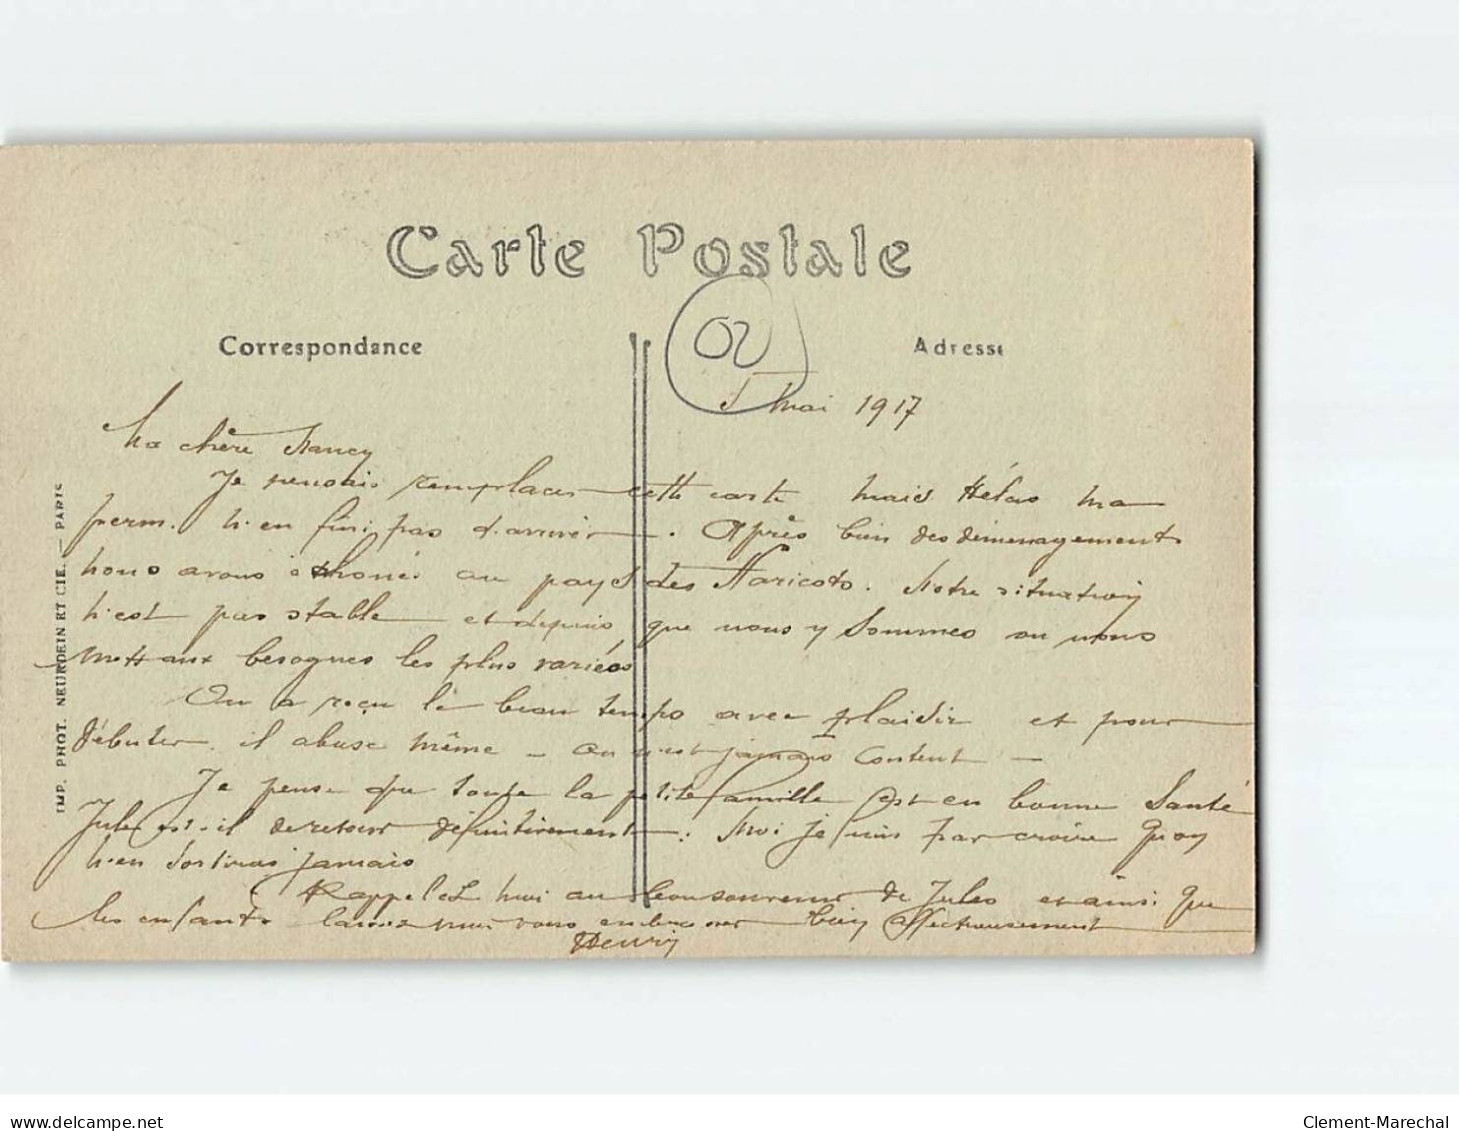 Carte Postale
Correspondance
Adresse
02
5 mai 1917
Ma chère Nancy
Je pensais remplacer cette carte mais Hélas ma
perm. n'en fini pas d'arriver. Après bien des déménagements
nous avons échoués au pays des Haricots. Notre situation
n'est pas stable et depuis que nous y sommes on nous
met aux besognes les plus variées
On a reçu le beau temps avec plaisir et pour
débuter il abuse même - on n'est jamais content -
Je pense que toute la petite famille est en bonne Santé
Jules est-il de retour définitivement. Moi je finis par croire qu'on
n'en sortiras jamais
Rappelez moi au bon souvenir de Jules et ainsi que
les enfants laissez moi vous embrasser bien affectueusement
Henry
IMP. PHOT. NEURDEIN ET CIE. — PARIS
www.delcampe.net
Clement-Marechal